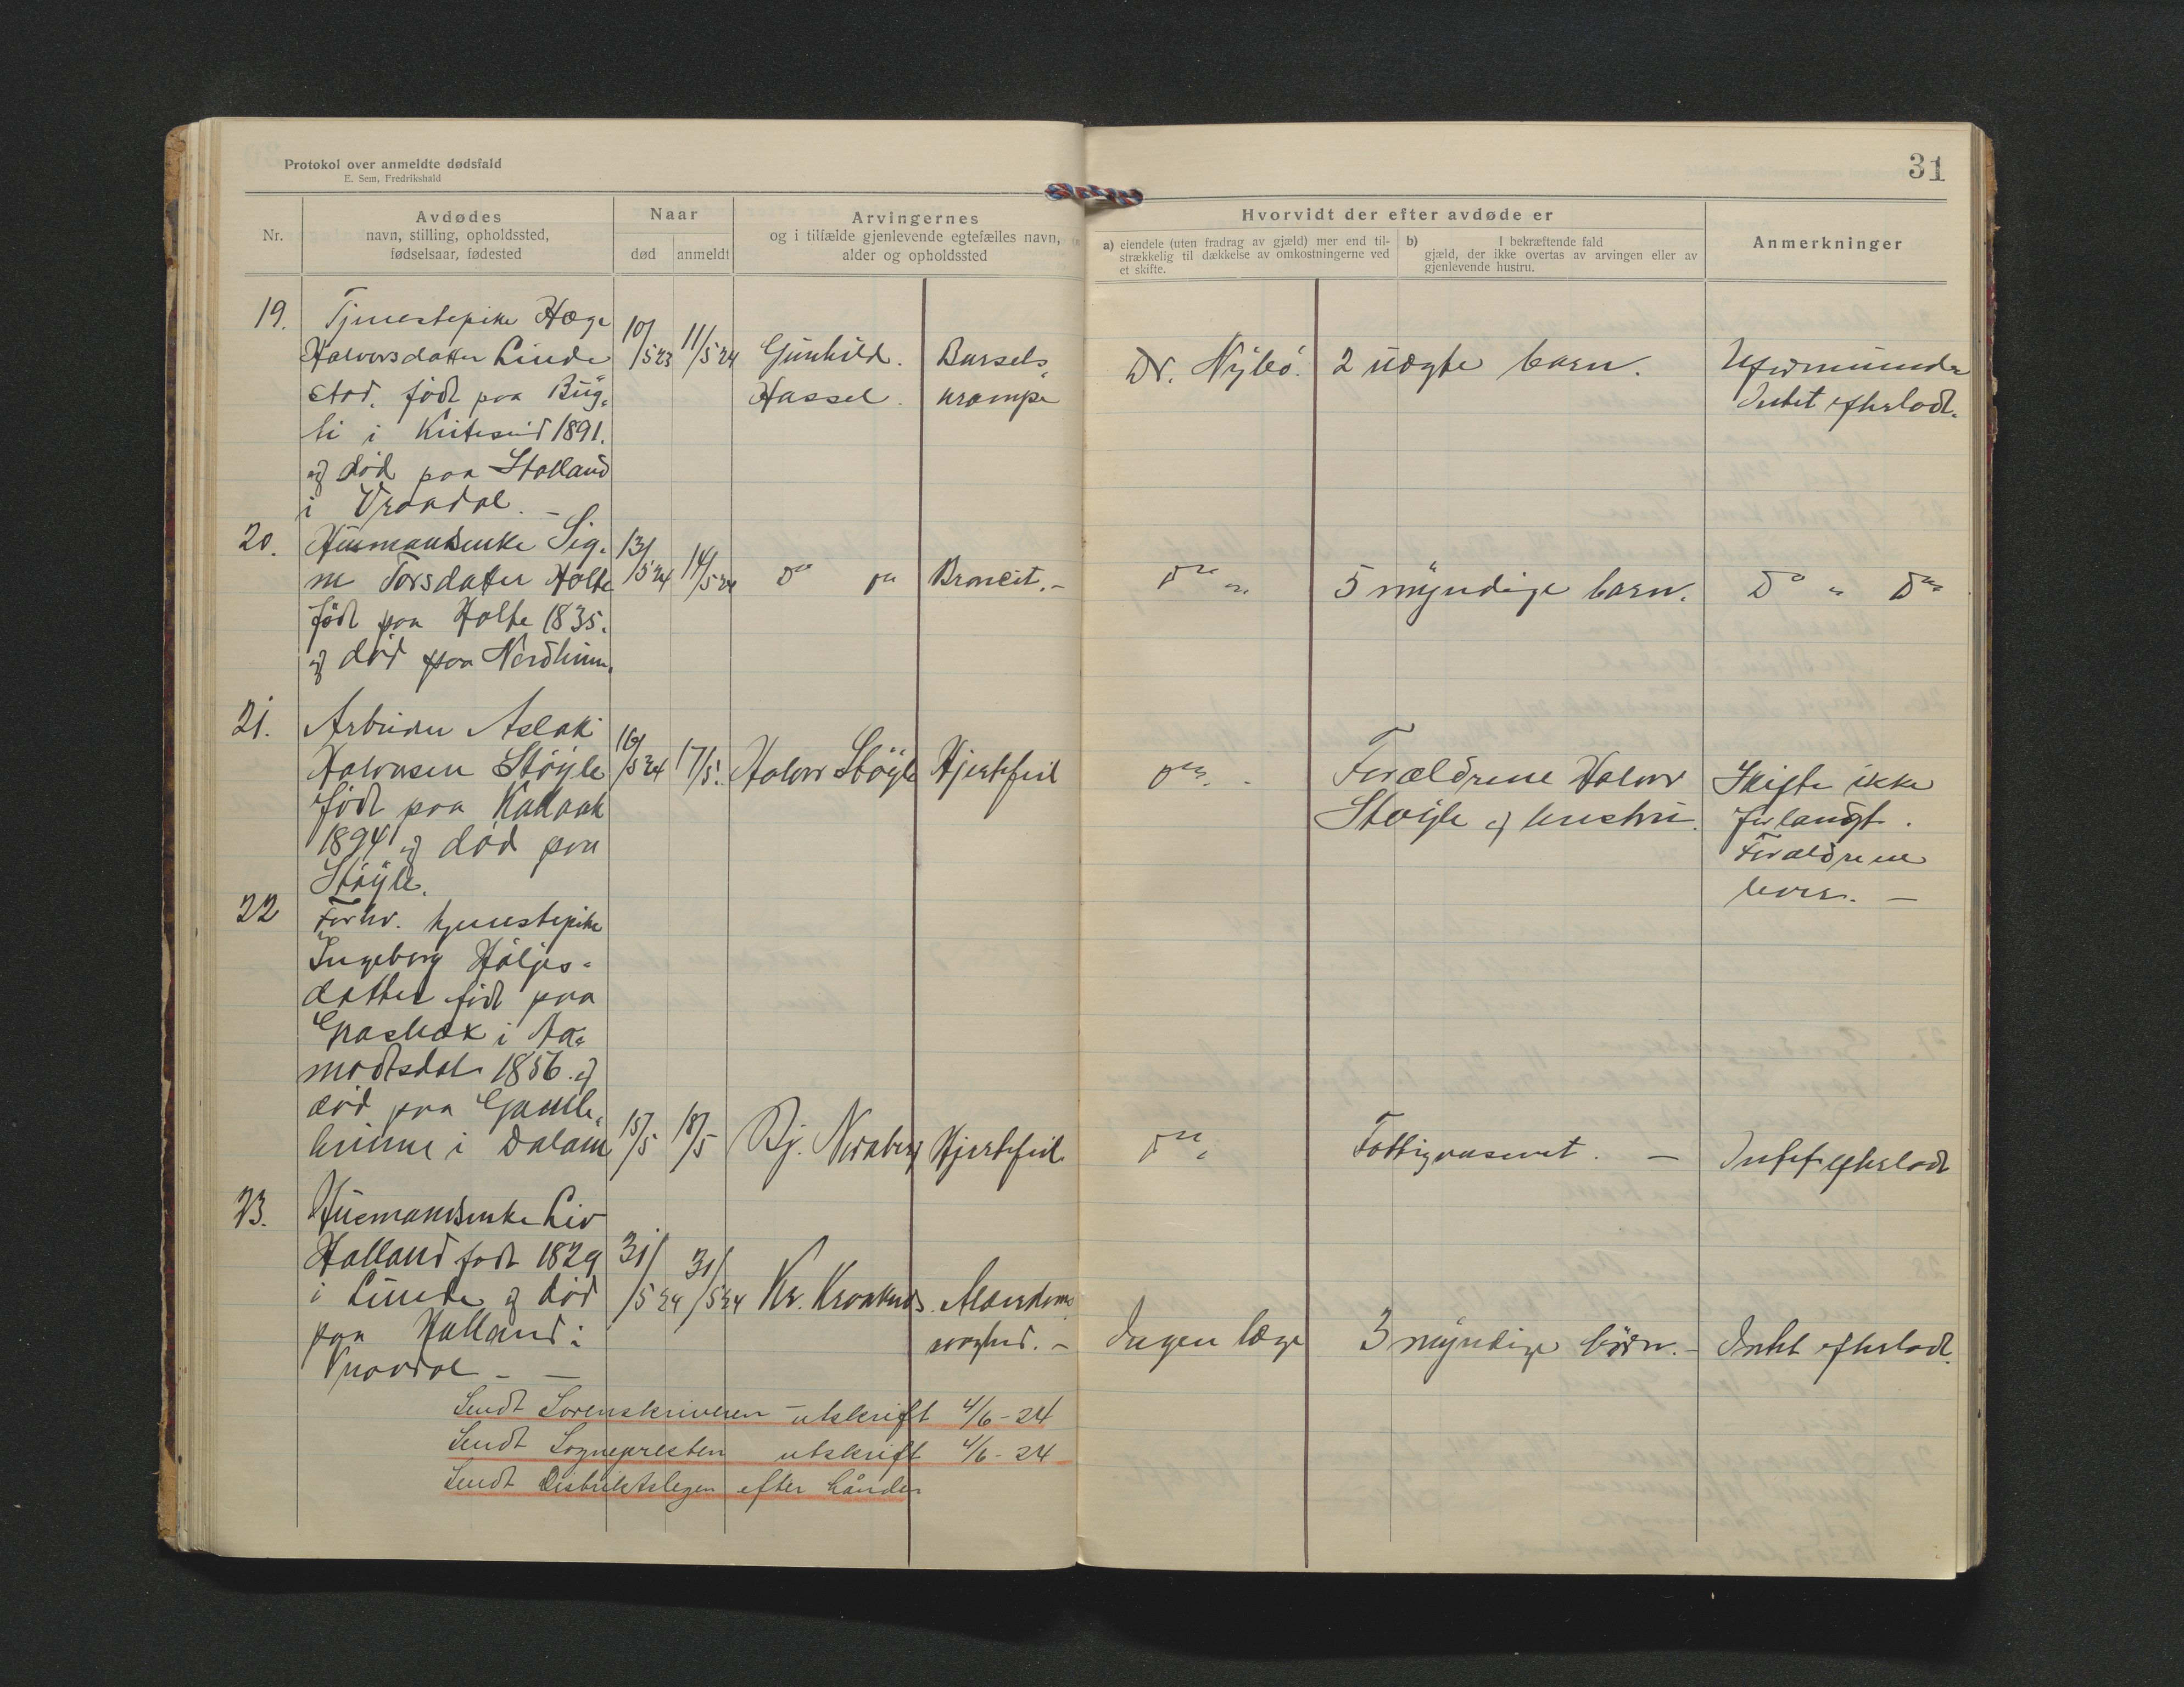 Protokol over anmeldte dødsfald
E. Sem, Fredrikshald
31
Nr.
Avdødes
navn, stilling, opholdssted,
fødselsaar, fødested
Naar
død
anmeldt
Arvingernes
og i tilfælde gjenlevende egtefælles navn,
alder og opholdssted
Hvorvidt der efter avdøde er
a) eiendele (uten fradrag av gjæld) mer end til-
strækkelig til dækkelse av omkostningerne ved
et skifte.
b) I bekræftende fald
gjæld, der ikke overtas av arvingen eller av
gjenlevende hustru.
Anmerkninger
19. Tjenestepike Hæge
Halvorsdatter Linde
stad. født paa
i 1891.
og død paa Stalland
i Vraadal. -
10/5 23 11/5 24 Gunhild. Barsels-
Hassel. krampe
Dr. Nybö. 2 uægte barn. Uformuende
Intet efterladt.
20. Husmandsenke Sig-
ne Torsdatter Holte
født paa Holte 1835.
og død paa
13/5 24 14/5 24 Do Do Broncit. -
Do 5 myndige barn. Do " Do
21. Arbeider Aslak
Halvorsen Støyle
født paa
1894 og død paa
Støyle.
16/5 24 17/5. Halvor Støyle Hjertefeil
Do Forældrene Halvor Skifte ikke
Støyle og hustru. forlangt.
Forældrene
lever. -
22 Forhv. tjenestepike
Ingeborg Høljes-
datter født paa
i Aa-
modtsdal 1856. og
død paa Gamle-
i Dalane
15/5 18/5 Bj. Hjertefeil
Do Fattigvæsenet. - Intet efterladt
23. Husmandsenke Liv
Halland født 1829
i Lunde og død
paa Halland i
Vraadal - -
31/5 24 31/5 24 Kr. Alderdoms
svaghed. -
Ingen læge 3 myndige börn. - Intet efterladt.
Sendt Sorenskriveren - utskrift 4/6 - 24
Sendt Sognepresten utskrift 4/6 - 24
Sendt Distriktslegen efter hånden